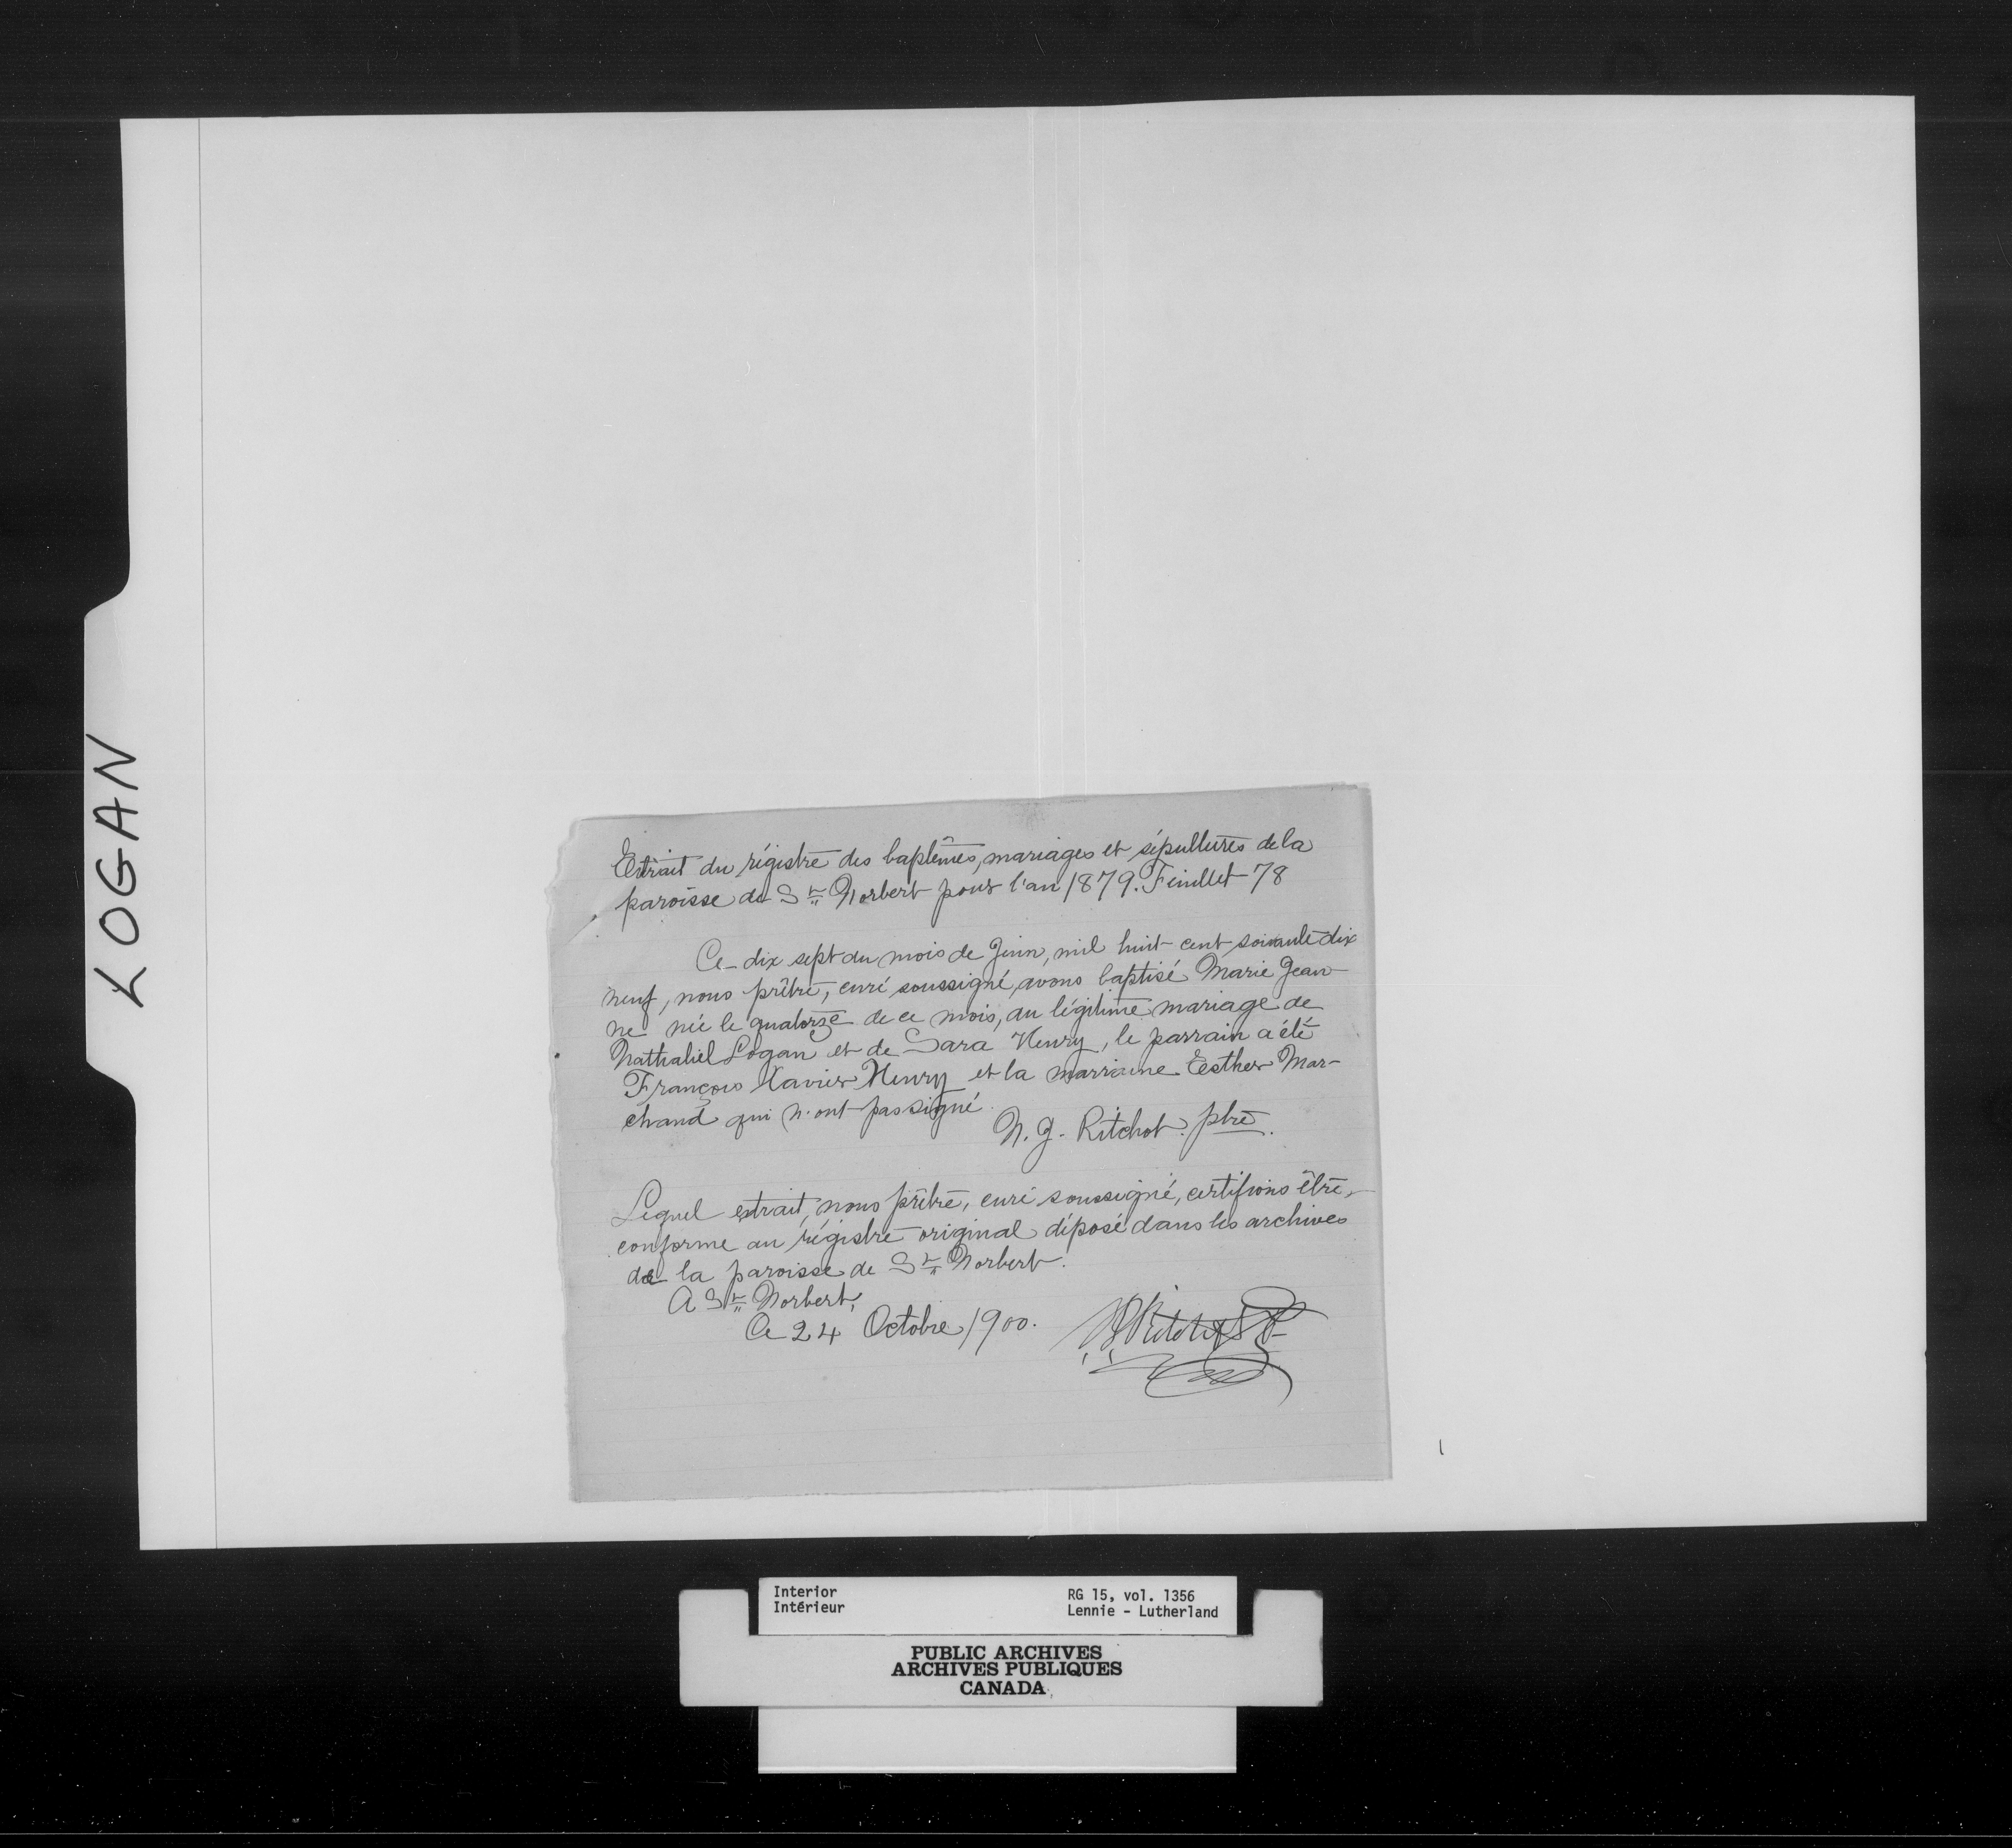 LOGAN
Extrait du régistre des baptêmes, mariages et sépultures de la
paroisse de St Norbert pour l'an 1879. Feuillet 78
Ce dix sept du mois de Juin, mil huit cent soixante dix
neuf, nous prêtre, curé soussigné, avons baptisé Marie Jean-
ne née le quatorze de ce mois, du légitime mariage de
Nathaliel Logan et de Sara Henry, le parrain a été
François Xavier Henry et la marraine Esther Mar-
chand qui n'ont pas signé.
N. J. Ritchot. ptre.
Lequel extrait, nous prêtre, curé soussigné, certifions être,
conforme au régistre original déposé dans les archives
de la paroisse de St Norbert.
A St Norbert,
Ce 24 Octobre 1900.
NJ Ritchot P
Interior RG 15, vol. 1356
Intérieur Lennie - Lutherland
PUBLIC ARCHIVES
ARCHIVES PUBLIQUES
CANADA